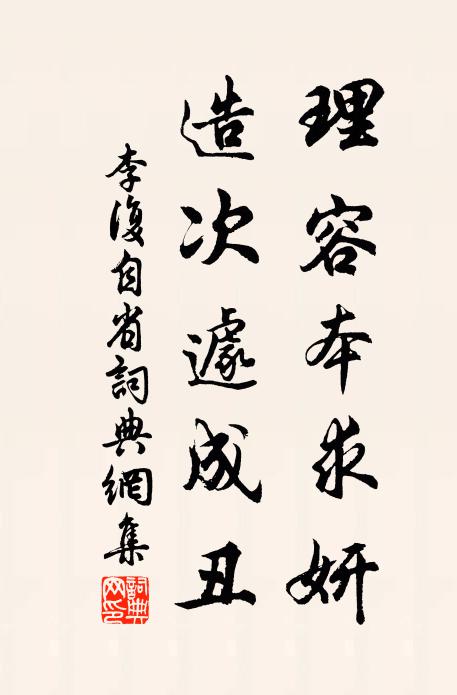 理容本求妍
造次遽成丑
李復自省詞典網集
詞典网印